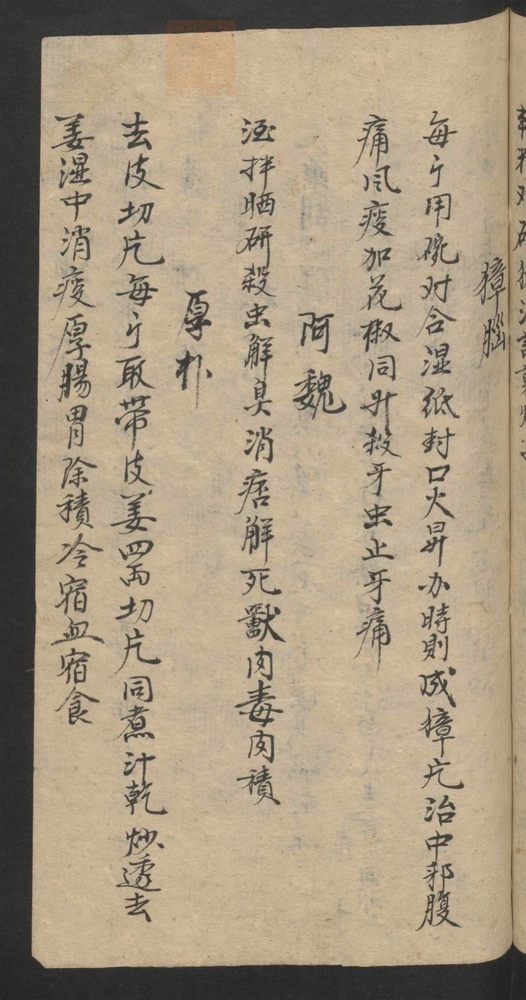 獐腦
每斤用碗对合湿纸封口火昇办時則成獐片治中邪腹
痛风疫加花椒同升殺牙虫止牙痛
阿魏
酒拌晒研殺虫解臭消痞解死獸肉毒肉積
厚朴
去皮切片每斤取带皮姜四两切片同煮汁乾炒透去
姜湿中消痰厚腸胃除積冷宿血宿食